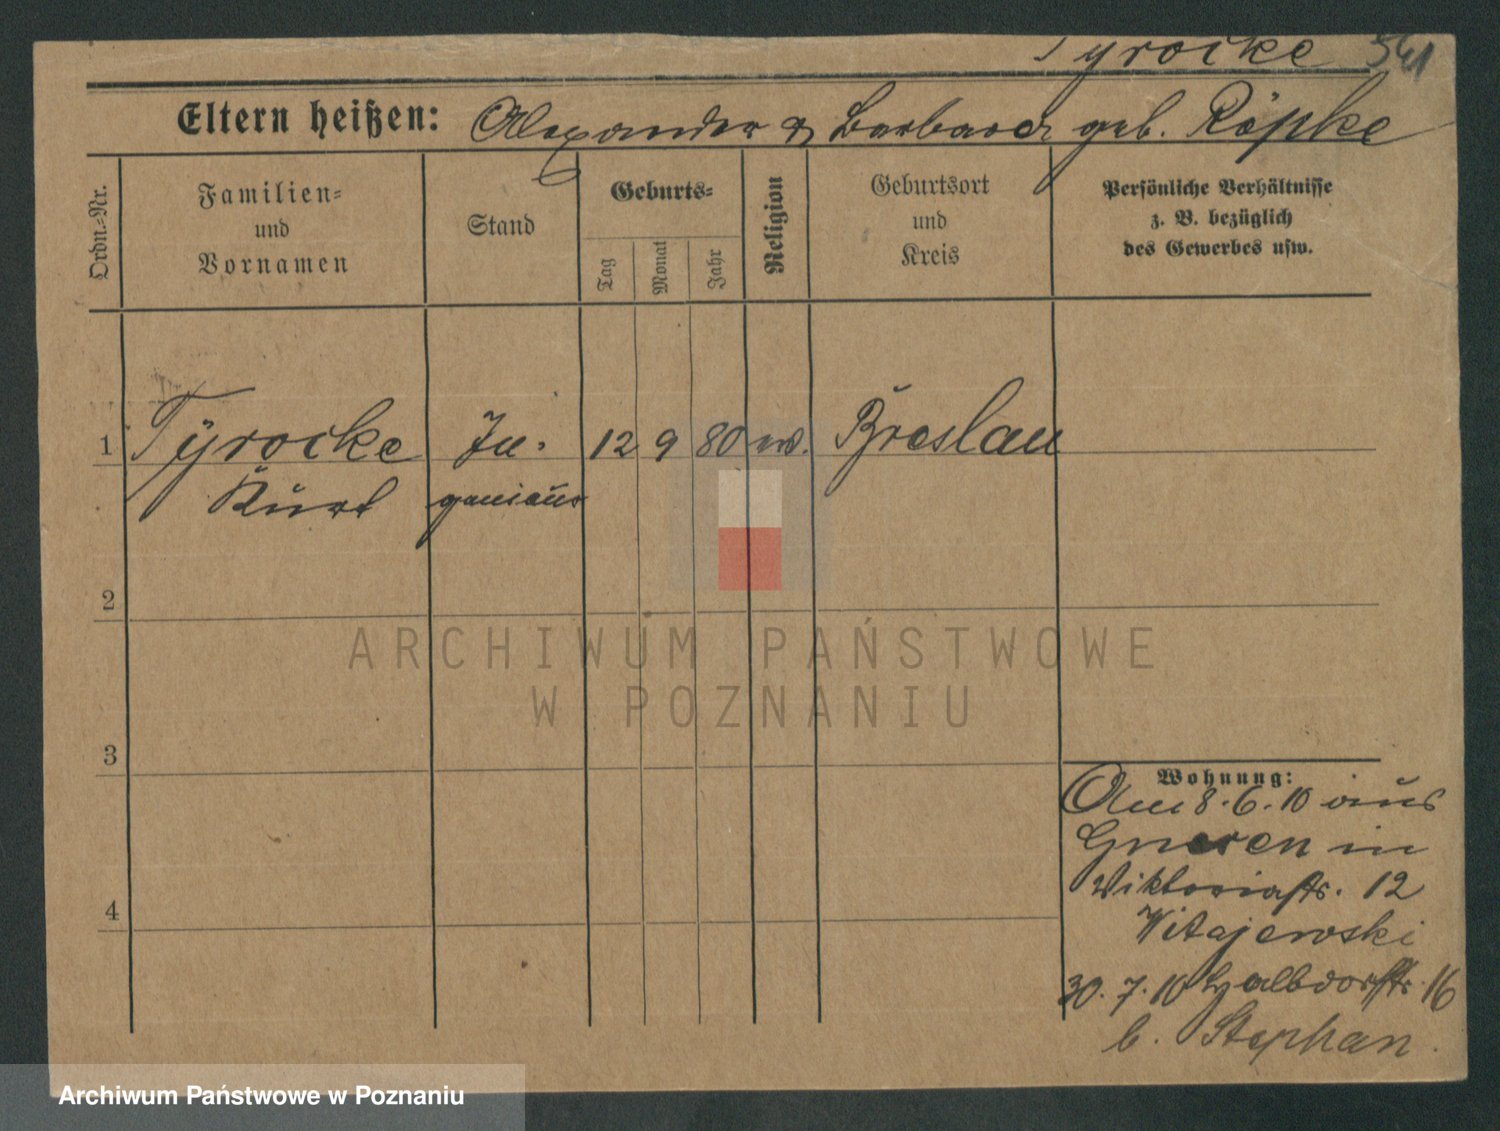 Tyrocke 541
Eltern heißen: Alexander & Barbara geb. Röpke
Ordn.=Nr.
Familien=
und
Vornamen
Stand
Geburts=
Tag
Monat
Jahr
Religion
Geburtsort
und
Kreis
Persönliche Verhältnisse
z. B. bezüglich
des Gewerbes usw.
1 Tyrocke In= 12 9 80 ev. Breslau
Kurt genieur
2
3
4
Wohnung:
Am 8.6.10 aus
Gnesen in
Viktoriastr. 12
Witajewski
30.7.10 Halbdorfstr. 16
b. Stephan.
ARCHIWUM PAŃSTWOWE
W POZNANIU
Archiwum Państwowe w Poznaniu